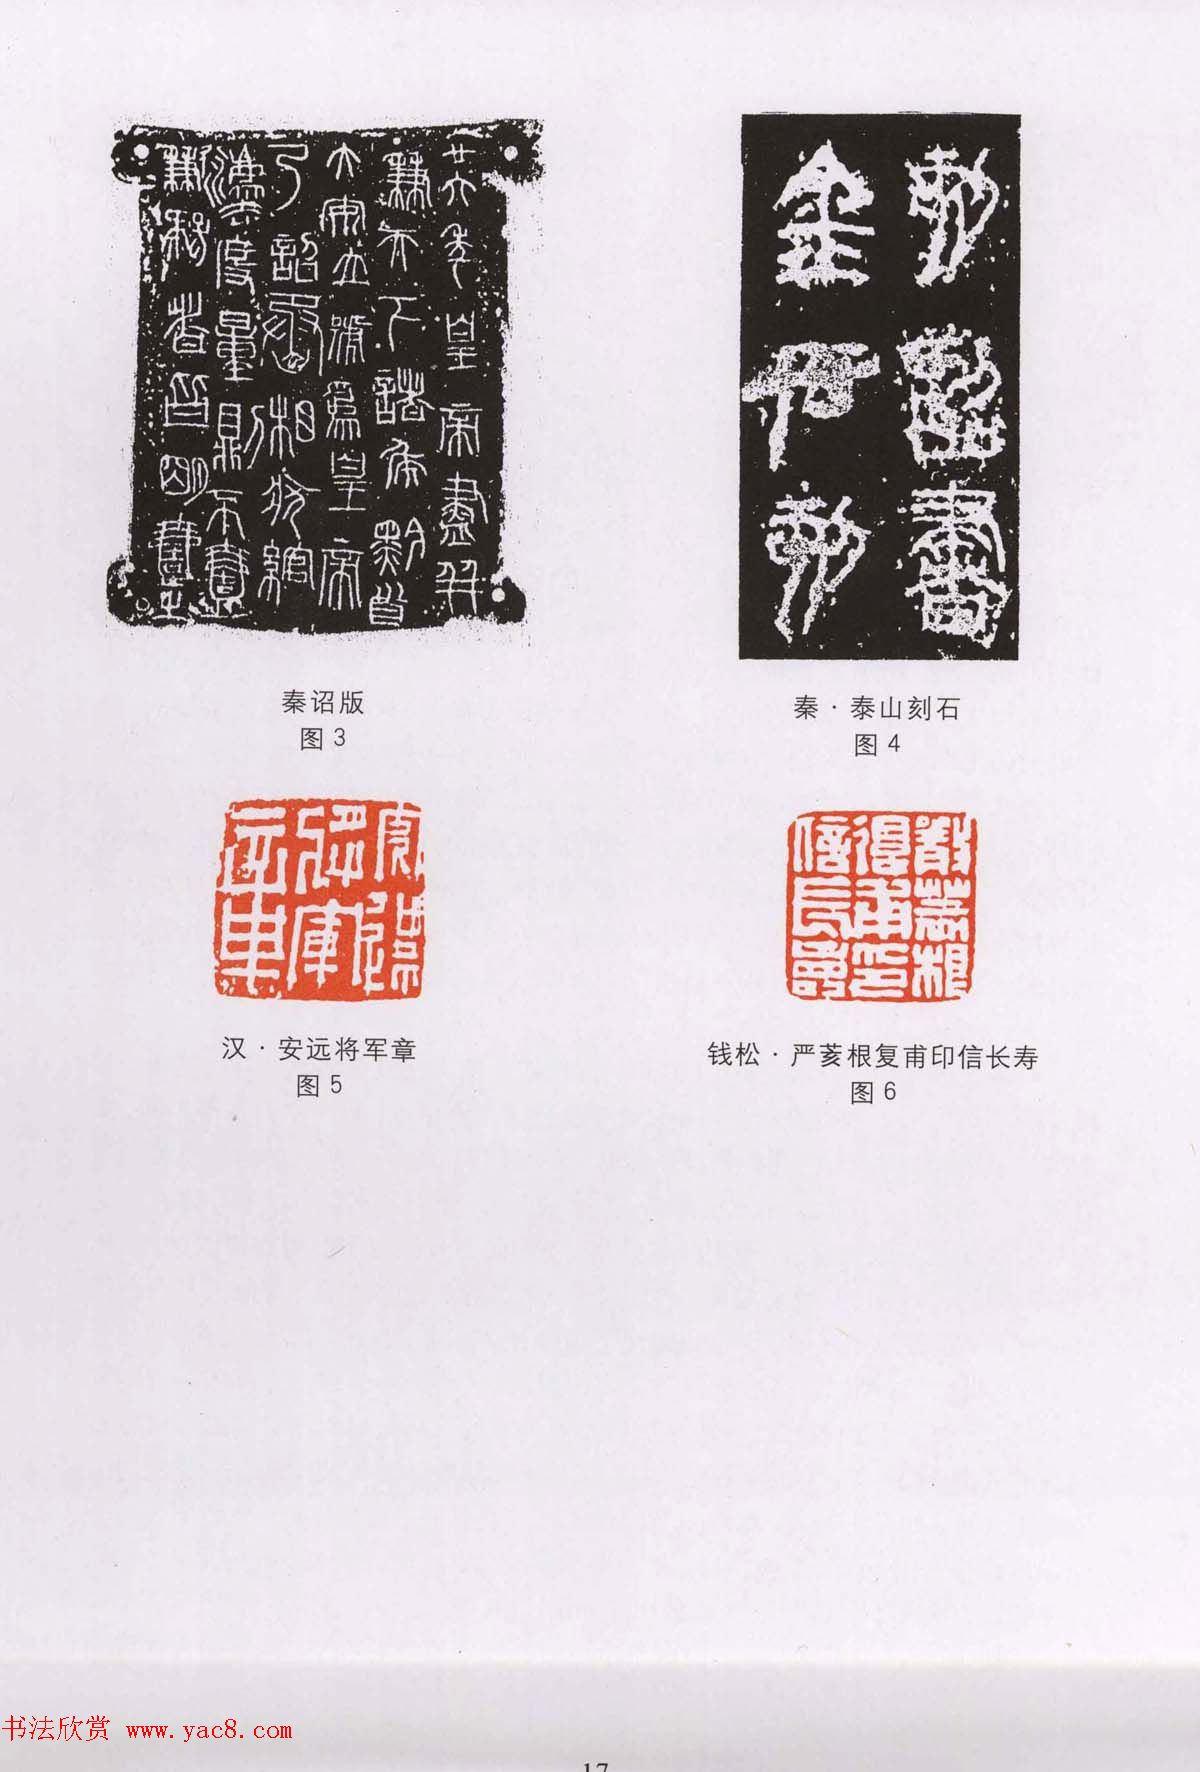 廿六年皇帝盡并
兼天下諸侯黔首
大安立號為皇帝
乃詔丞相狀綰
灋度量則不壹
歉疑者皆明壹之
刻詔書
金石刻
秦诏版
图3
秦·泰山刻石
图4
安遠
將軍
章
嚴荄根
復甫印
信長壽
汉·安远将军章
图5
钱松·严荄根复甫印信长寿
图6
书法欣赏 www.yac8.com
17